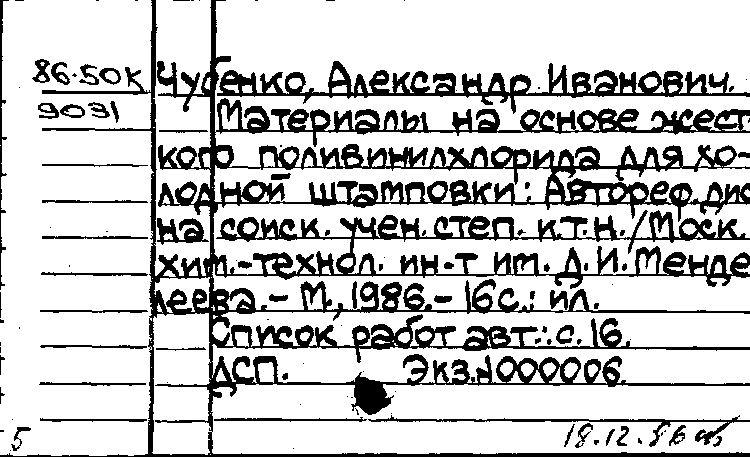 86-50к Чубенко, Александр Иванович.
9031 Материалы на основе жест-
кого поливинилхлорида для хо-
лодной штамповки: Автореф. дис
на соиск. учен. степ. к.т.н./Моск.
хим.-технол. ин-т им. Д.И. Менде
леева.- М., 1986.- 16с.: ил.
Список работ авт.: с. 16.
ДСП. Экз.N000006.
5 18.12.86